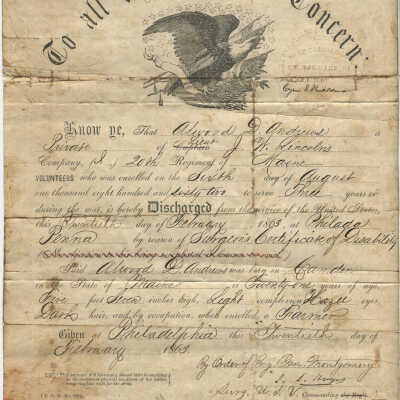 To all Concern:
Know ye, That Alwood D Andrews a
Private of Lieut W. Lincolns
Company, 20th Regiment of Maine
VOLUNTEERS who was enrolled on the Sixth day of August
one thousand eight hundred and sixty two to serve Three years or
during the war, is hereby Discharged from the service of the United States,
this Twentieth day of February, 1863, at Philada
Penna by reason of Surgeons Certificate of Disability
Said Alwood D Andrews was born in Camden
in the State of Maine is Twenty one years of age,
Five feet Seven inches high, Light complexion Hazel eyes,
Dark hair, and by occupation, when enrolled, a Farmer
Given at Philadelphia this Twentieth day of
February 1863.
By Order of Brig. Gen. Montgomery
Surg. U.S.V. Commanding